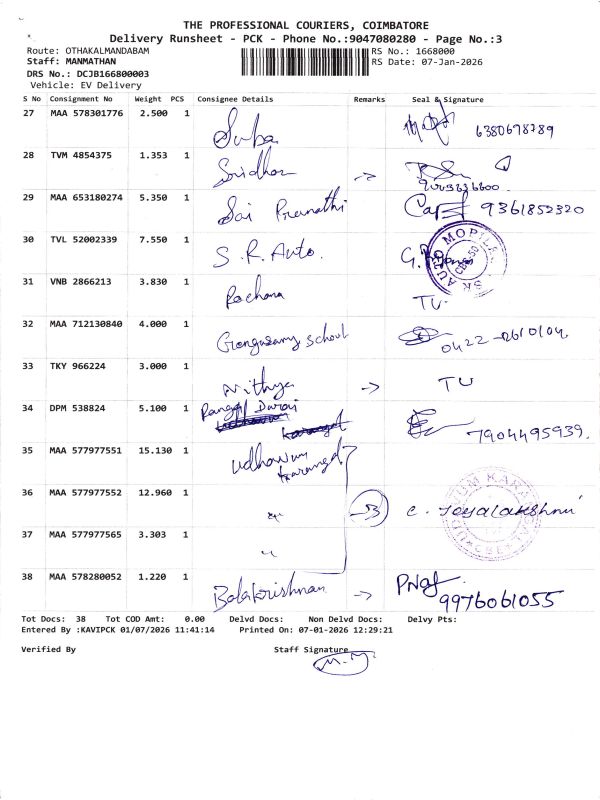 THE PROFESSIONAL COURIERS, COIMBATORE
Delivery Runsheet - PCK - Phone No.:9047080280 - Page No.:3
Route: OTHAKALMANDABAM RS No.: 1668000
Staff: MANMATHAN RS Date: 07-Jan-2026
DRS No.: DCJB166800003
Vehicle: EV Delivery
S No Consignment No Weight PCS Consignee Details Remarks Seal & Signature
27 MAA 578301776 2.500 1 Suba 6380678789
28 TVM 4854375 1.353 1 Sridhar
29 MAA 653180274 5.350 1 Sai Pranathi 9361852320
30 TVL 52002339 7.550 1 S.R. Auto.
31 VNB 2866213 3.830 1 Rachana TU
32 MAA 712130840 4.000 1 school 0422-2610104
33 TKY 966224 3.000 1 Nithya TU
34 DPM 538824 5.100 1 Durai 7904495939.
35 MAA 577977551 15.130 1 udhavum karangal
36 MAA 577977552 12.960 1 C. Jeyalakshmi
37 MAA 577977565 3.303 1
38 MAA 578280052 1.220 1 Balakrishnan 9976061055
Tot Docs: 38 Tot COD Amt: 0.00 Delvd Docs: Non Delvd Docs: Delvy Pts:
Entered By :KAVIPCK 01/07/2026 11:41:14 Printed On: 07-01-2026 12:29:21
Verified By Staff Signature